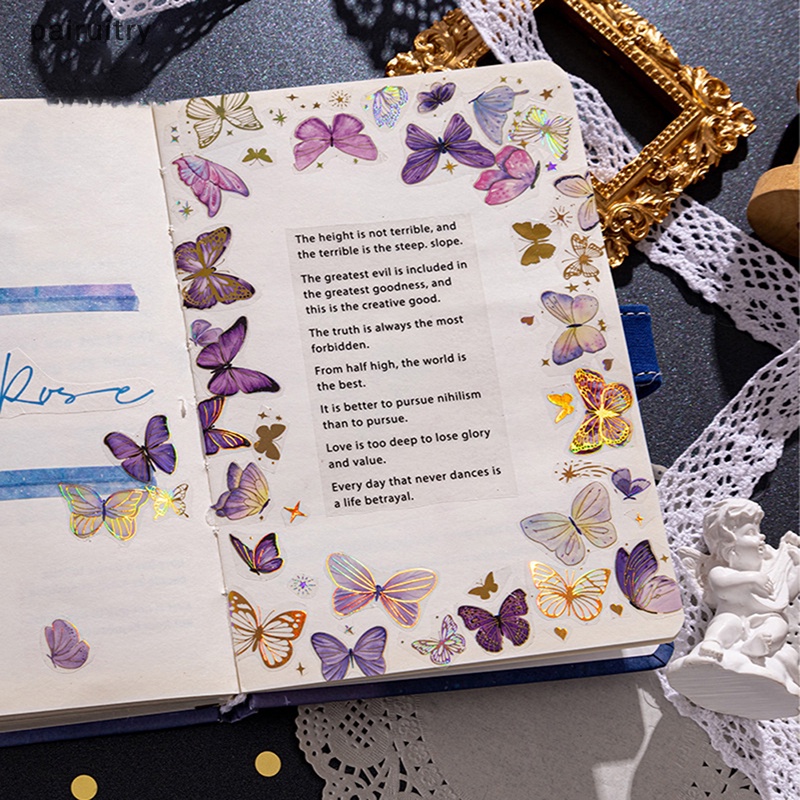 pairuitry
The height is not terrible, and
the terrible is the steep. slope.
The greatest evil is included in
the greatest goodness, and
this is the creative good.
The truth is always the most
forbidden.
From half high, the world is
the best.
It is better to pursue nihilism
than to pursue.
Love is too deep to lose glory
and value.
Every day that never dances is
a life betrayal.
Rose